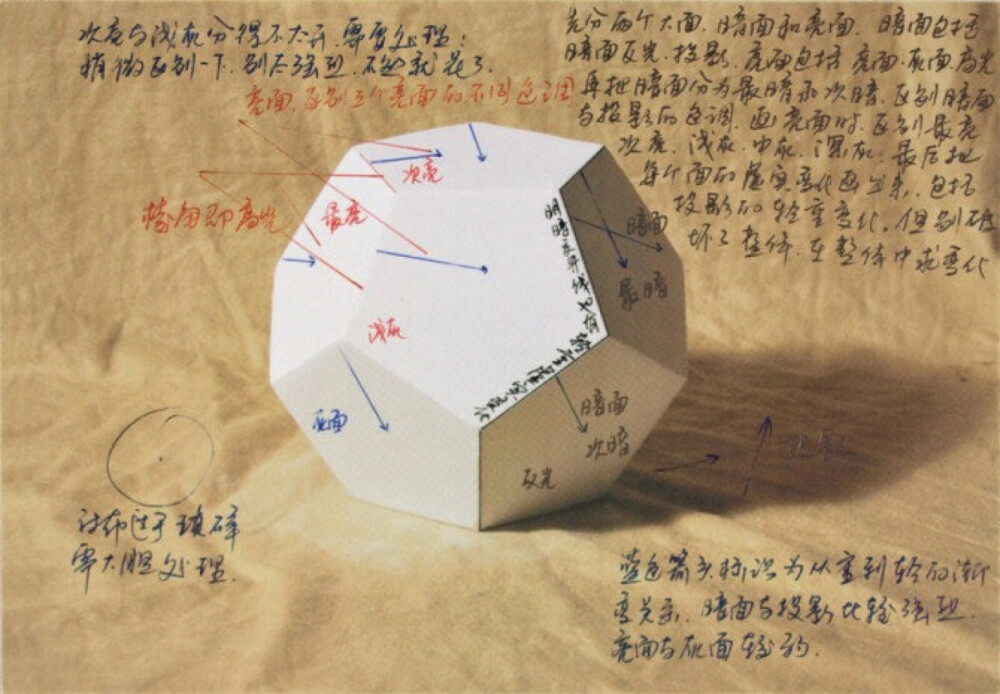 次亮与浅灰分得不太开，需要处理：
稍微区别一下，别太强烈，不然就花了。
先分两个大面，暗面和亮面。暗面包括
暗面反光、投影。亮面包括亮面、灰面、高光
再把暗面分为最暗和次暗，区别暗面
与投影的色调。画亮面时，区别最亮
次亮、浅灰、中灰、深灰。最后把
每个面的虚实变化画出来，包括
投影的轻重变化，但别破
坏了整体，在整体中求变化
亮面，区别三个亮面的不同色调
次亮
最亮
棱角即高光
浅灰
灰面
明暗交界线
轻重虚实变化
暗面
最暗
暗面
次暗
反光
投影
衬布过于琐碎
需大胆处理。
蓝色箭头标识为从重到轻的渐
变关系，暗面与投影比较强烈
亮面与灰面较弱.